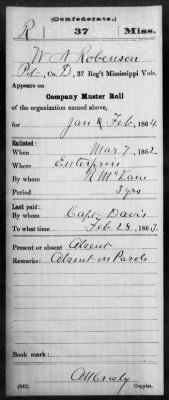 (Confederate.)
R 37 Miss.
W A Robinson
Pvt, Co. D, 37 Reg't Mississippi Vols.
Appears on
Company Muster Roll
of the organization named above,
for Jan & Feb, 1864.
Enlisted:
When Mar 7, 1862
Where Enterprise
By whom R McLain
Period 3 yrs
Last paid:
By whom Capt. Davis
To what time Feb 28, 1863.
Present or absent Absent
Remarks: Absent on Parole
Book mark:
(642) Copyist.